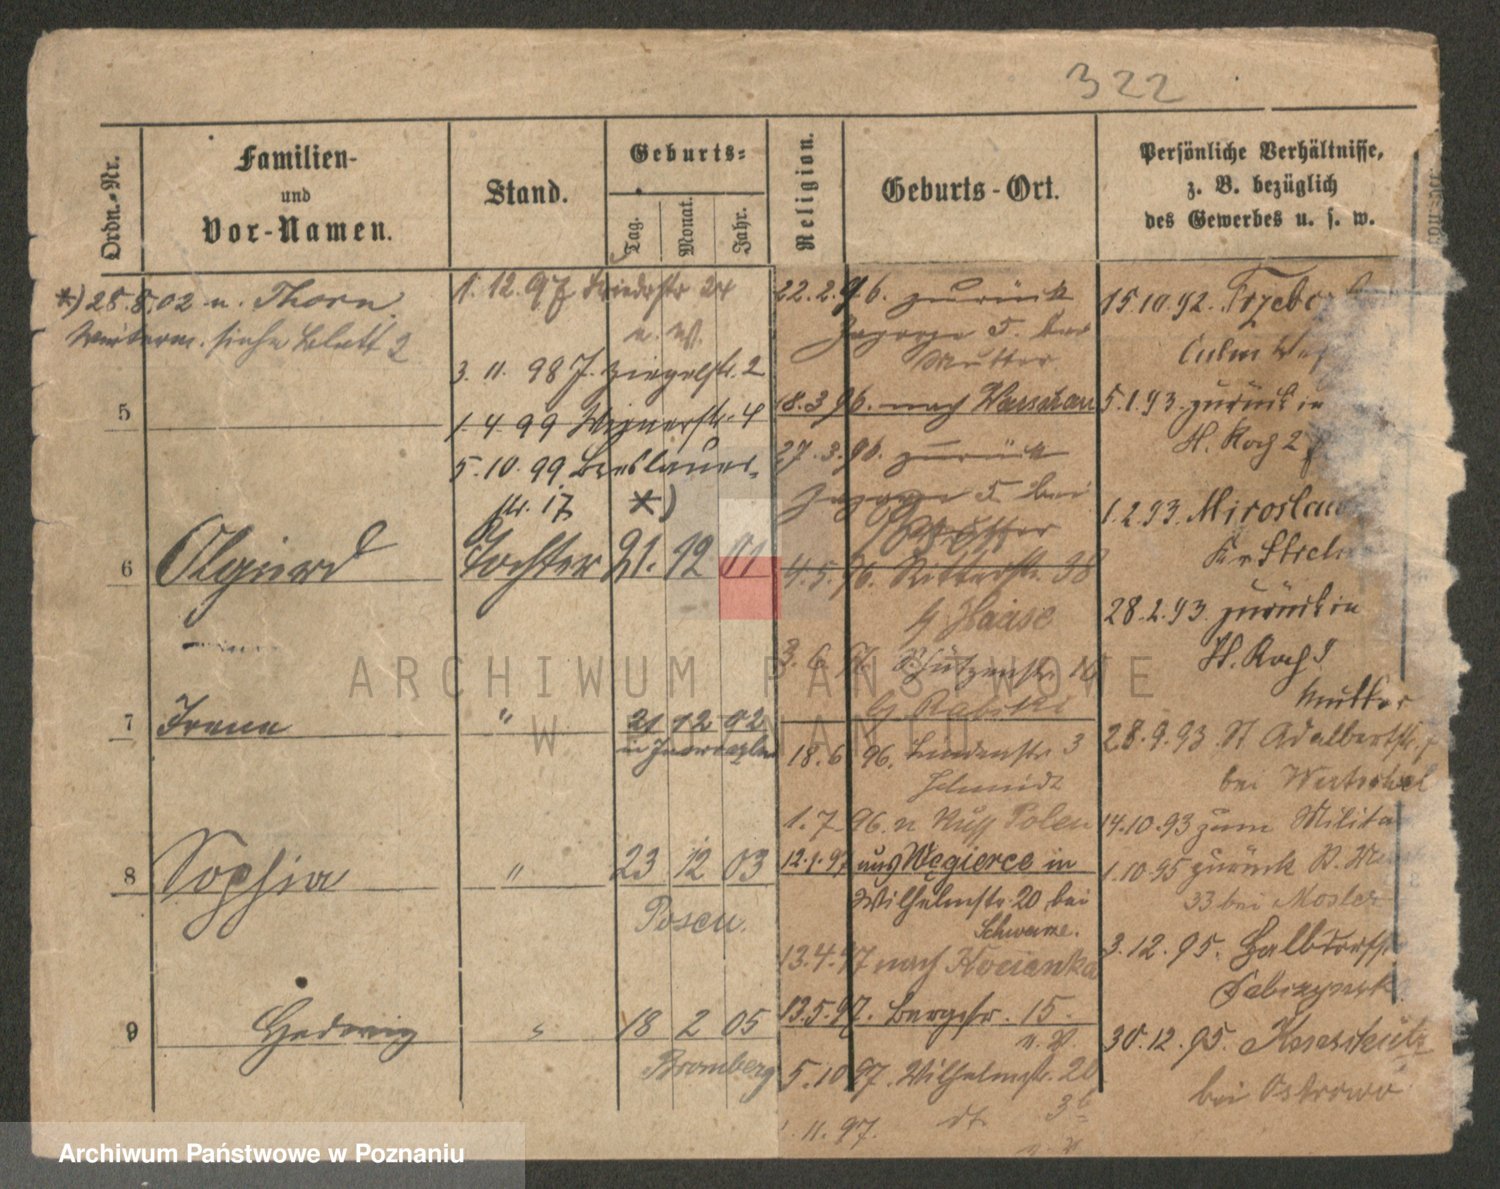 322
Ordn.-Nr.
Familien-
und
Vor-Namen.
Stand.
Geburts-
Tag.
Monat.
Jahr.
Religion.
Geburts-Ort.
Persönliche Verhältnisse,
z. B. bezüglich
des Gewerbes u. s. w.
*) 28.8.02 n. Thorn
siehe Blatt 2
1.12.97 24
n. W.
3.11.98 Ziegelstr. 2
1.4.99 4
5.10.99 Breslauer-
str. 17 *)
5
6 Olgierd Tochter 21. 12 01
7 Irena " 21 12 02
in Inowrazlaw
8 Sophia " 23 12 03
Posen.
9 Hedwig " 18 2 05
Bromberg
22.2.96. zurück
Zagorze 5. bei
Mutter
18.3.96. nach Warschau
27.3.96. zurück
Zagorze 5. bei
Mutter
4.5.96. Ritterstr. 38
b/ Haase
3.6. Schützenstr. 19
b/ Rabski
18.6 96. Lindenstr. 3
Schmidt
1.7.96. n Russ Polen
12.1.97 aus Węgierce in
Wilhelmstr. 20 bei
Schwarze.
13.4.97 nach Kocienka
13.5.97. Bergstr. 15.
n. W.
5.10.97. Wilhelmstr. 20
11.97. dt 3
15.10.92.
Culm
5.1.93. zurück in
H. Koch 2
1.2.93. Miroslaw
28.2.93. zurück in
H. Koch
Mutter
28.9.93. St Adalbertstr.
bei
14.10.93 zum Milita
1.10.95 zurück
33 bei Mosler
3.12.95. Halbdorfst
30.12.95.
bei Ostrowo
ARCHIWUM PAŃSTWOWE
W POZNANIU
Archiwum Państwowe w Poznaniu